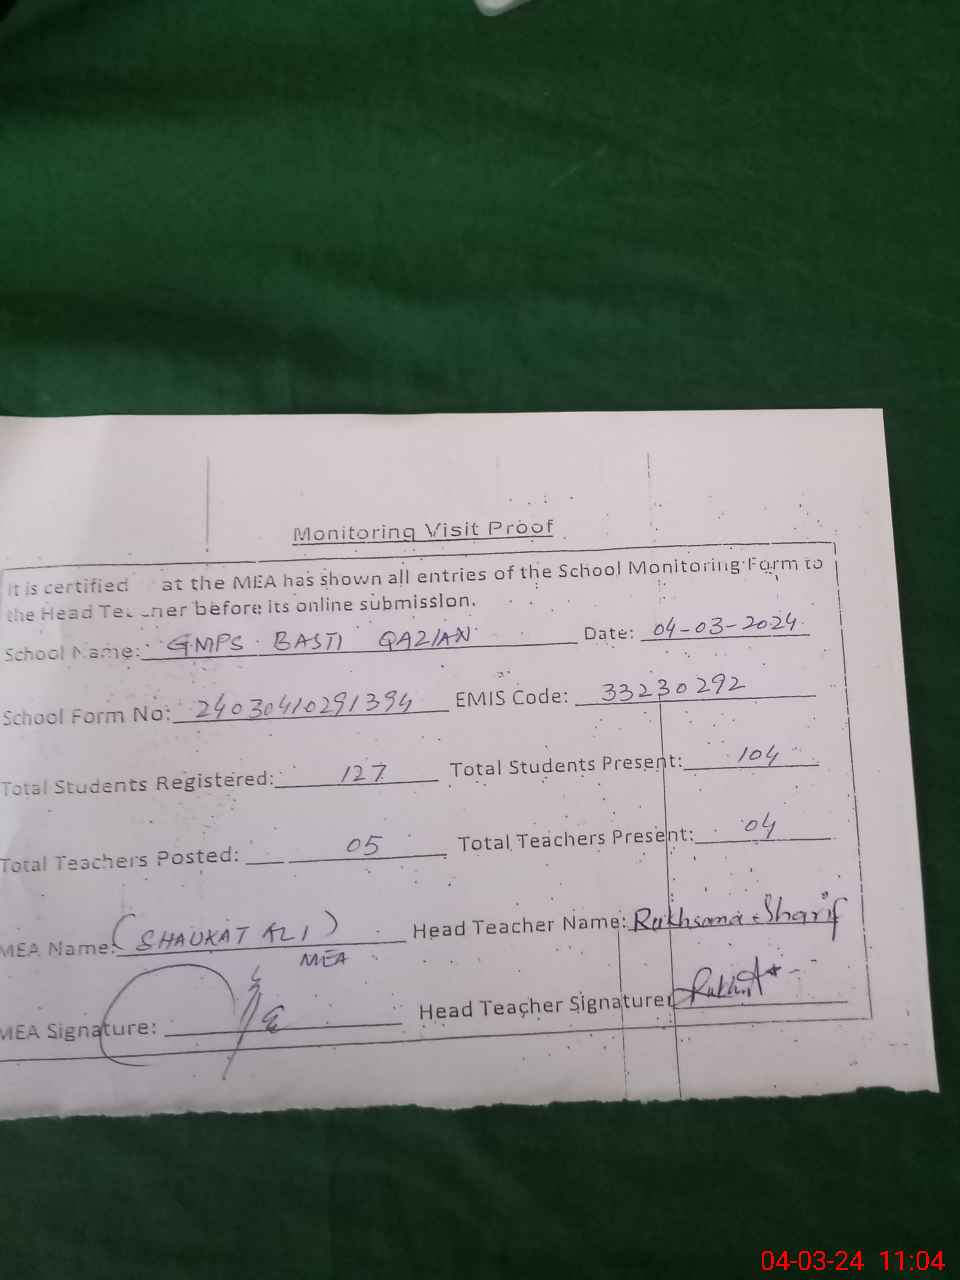 Monitoring Visit Proof
It is certified at the MEA has shown all entries of the School Monitoring Form to
the Head Teacher before its online submission.
School Name: GMPS BASTI QAZIAN Date: 04-03-2024
School Form No: 24030410291394 EMIS Code: 33230292
Total Students Registered: 127 Total Students Present: 104
Total Teachers Posted: 05 Total Teachers Present: 04
MEA Name: (SHAUKAT ALI) Head Teacher Name: Rukhsana Sharif
MEA
MEA Signature: Head Teacher Signature:
04-03-24 11:04